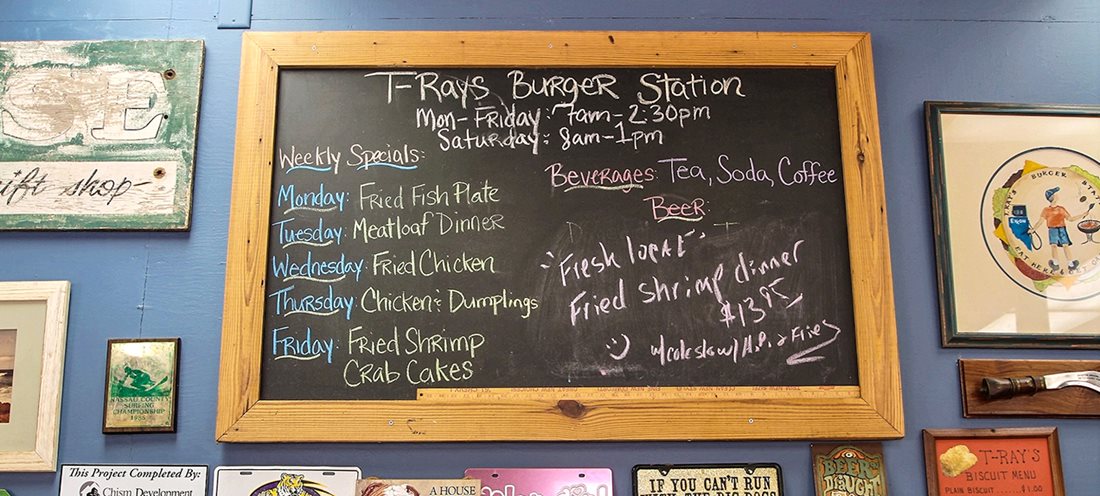 SE
ift shop-
T-Rays Burger Station
Mon-Friday: 7am-2:30pm
Saturday: 8am-1pm
Weekly Specials:
Monday: Fried Fish Plate
Tuesday: Meatloaf Dinner
Wednesday: Fried Chicken
Thursday: Chicken & Dumplings
Friday: Fried Shrimp
Crab Cakes
Beverages: Tea, Soda, Coffee
Beer
Fresh local
Fried shrimp dinner
$13.95
w/coleslaw/H.P. & Fries
T-RAYS BURGER STA
EXXON
EAT HERE
NASSAU COUNTY
SURFING
CHAMPIONSHIP
This Project Completed By:
Chism Development
A HOUSE
IF YOU CAN'T RUN
WITH THE BIG DOGS
BEER
DRAUGHT
T-RAY'S
BISCUIT MENU
PLAIN BISCUIT